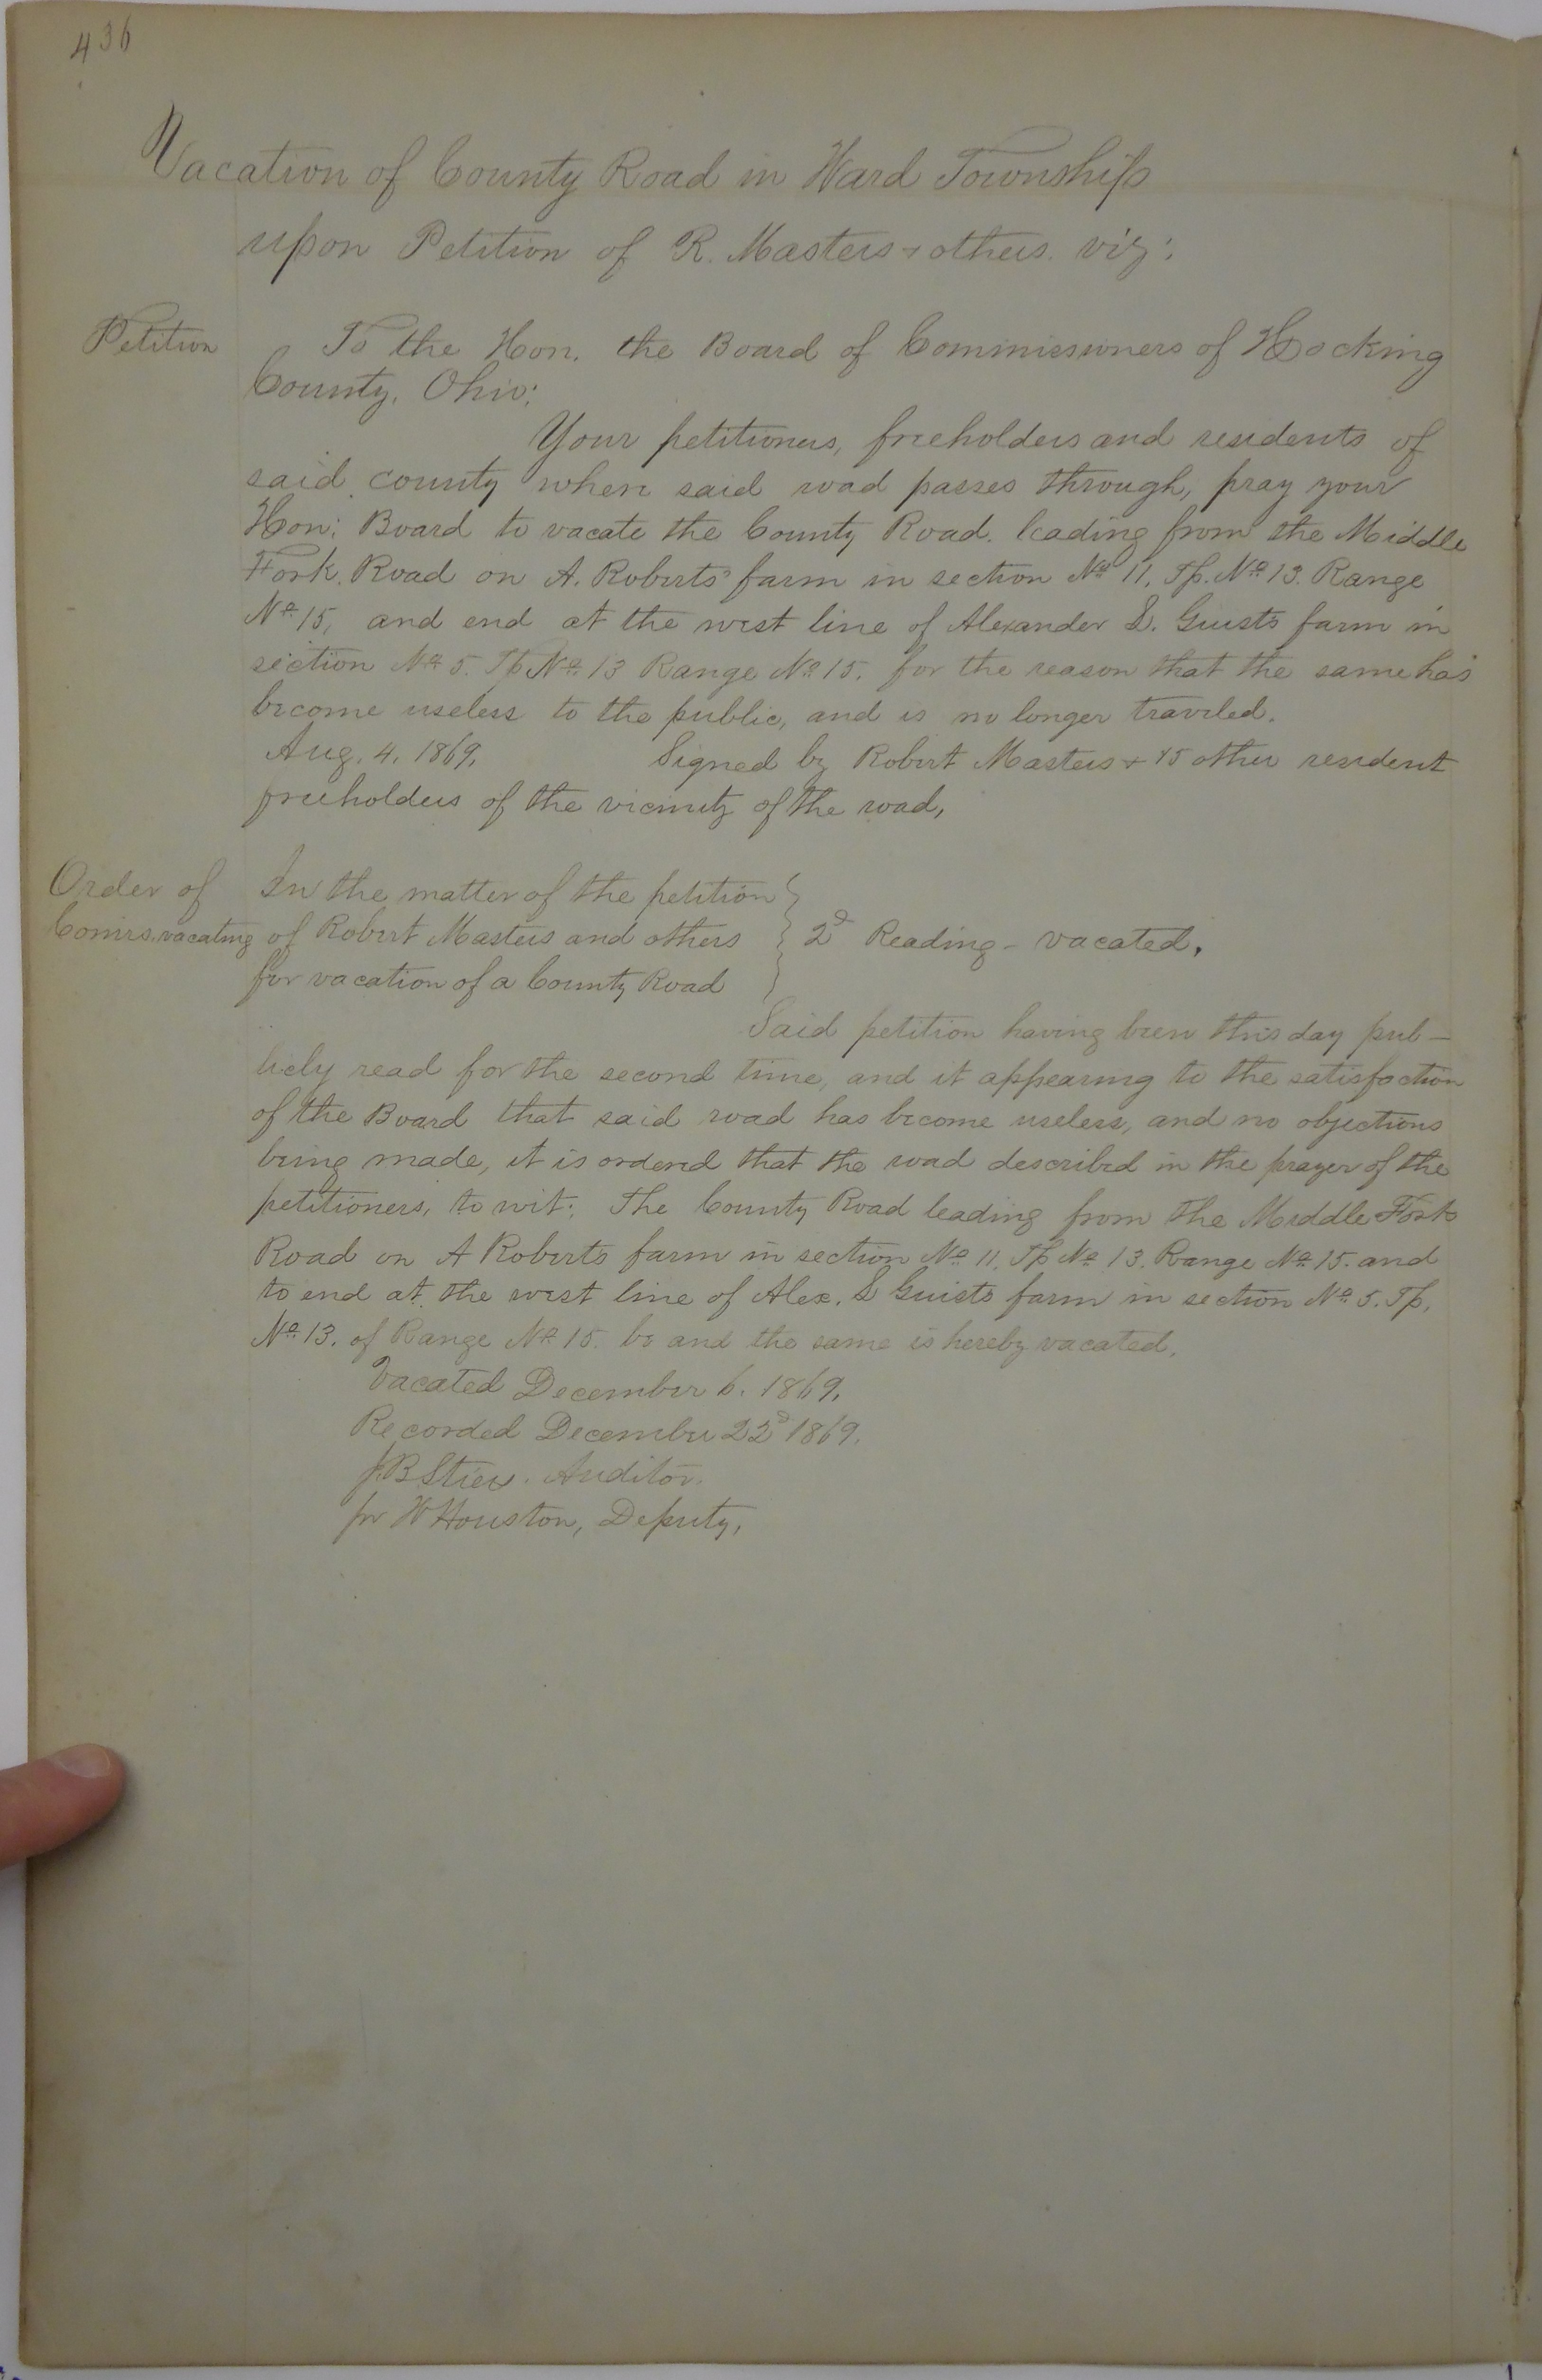 436
Vacation of County Road in Ward Township
upon Petition of R. Masters & others. viz:
Petition
To the Hon. the Board of Commissioners of Hocking
County, Ohio:
Your petitioners, freeholders and residents of
said county where said road passes through, pray your
Hon: Board to vacate the County Road. leading from the Middle
Fork Road on A. Roberts' farm in section No 11, Tp. No 13. Range
No 15, and end at the west line of Alexander S. Guists farm in
section No 5. Tp No 13 Range No 15. for the reason that the same has
become useless to the public, and is no longer traveled.
Aug. 4. 1869. Signed by Robert Masters & 15 other resident
freeholders of the vicinity of the road,
Order of
Comrs. vacating
In the matter of the petition
of Robert Masters and others
for vacation of a County Road
2d Reading - vacated.
Said petition having been this day pub-
licly read for the second time, and it appearing to the satisfaction
of the Board that said road has become useless, and no objections
being made, it is ordered that the road described in the prayer of the
petitioners, to wit: The County Road leading from the Middle Fork
Road on A Roberts farm in section No 11, Tp No 13. Range No 15. and
to end at the west line of Alex. S Guists farm in section No 5. Tp,
No 13. of Range No 15. be and the same is hereby vacated.
Vacated December 6. 1869.
Recorded December 22d 1869.
Auditor.
pr W Houston, Deputy,